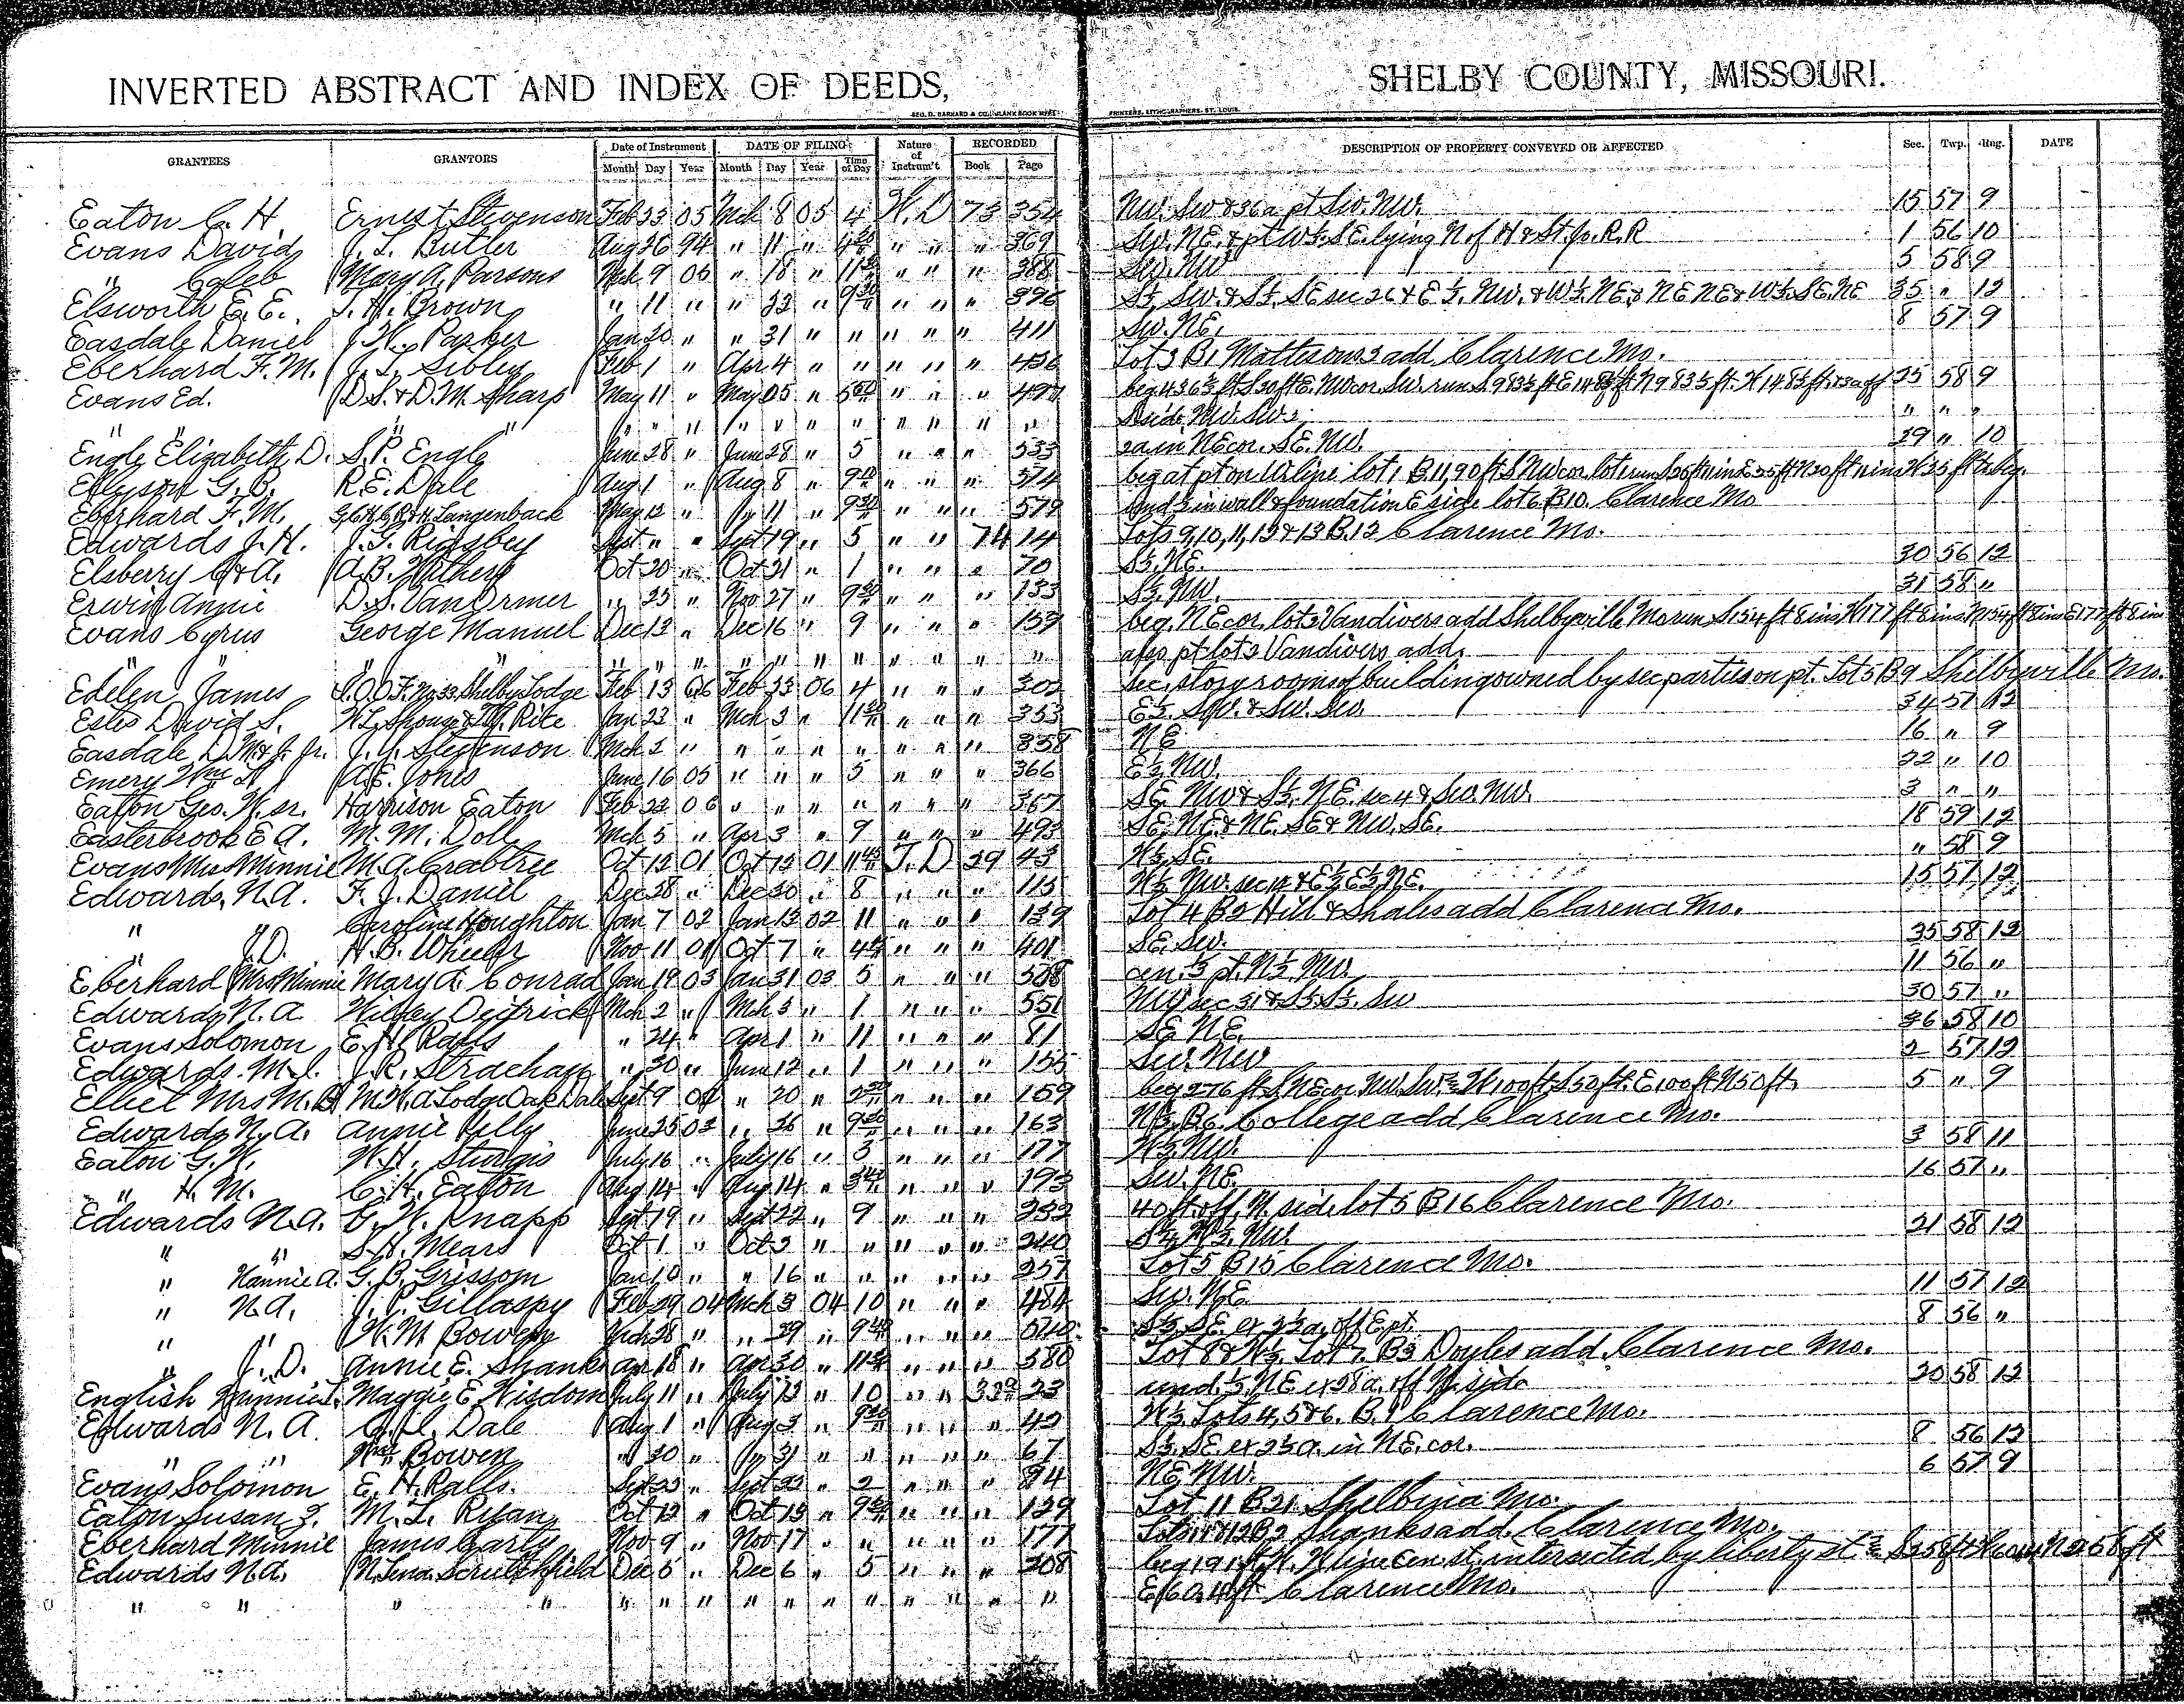 INVERTED ABSTRACT AND INDEX OF DEEDS, SHELBY COUNTY, MISSOURI.
GRANTEES GRANTORS Date of Instrument DATE OF FILING Nature of Instrum't RECORDED DESCRIPTION OF PROPERTY CONVEYED OR AFFECTED Sec. Twp. Rng. DATE
Month Day Year Month Day Year Time of Day Book Page
Eaton C. H. Ernest Stevenson Feb 23 05 Mch 8 05 4 W. D 73 354 NW. SW & 36 a pt SW. NW. 15 57 9
Evans David J. L. Butler Aug 26 94 " 11 " 4 " " " 369 SW. NE. & pt W½. SE. lying N of H & St. Jo. R. R 1 56 10
" Caleb Mary A. Parsons Mch 9 05 " 18 " 11 " " " 388 SW. NW 5 58 9
Elsworth E. E. J. H. Brown " 11 " " 22 " 9 30 " " " 396 S½ SW. & S½. SE sec 26 & E½. NW. & W½. NE. & NE NE & W½. SE. NE 35 " 12
Easdale Daniel J. W. Parker Jan 20 " " 31 " " " " " 411 SW. NE. 8 57 9
Eberhard F. M. J. L. Sibley Feb 1 " Apr 4 " " " " " 436 Lot 3 B1 Mattesons 2 add Clarence Mo.
Evans Ed. D. S. & D. M. Sharp May 11 " May 25 " " " " 497 25 58 9
" " " " " " " " " " " " " " " side NW. SW " " "
Engle Elizabeth D. S. P. Engle June 28 " June 28 " 5 " " " 533 2a in NE cor. SE. NW. 29 " 10
Ellyson G. B. R. E. Dale Aug 1 " Aug 8 " 9 " " " 574
Eberhard F. M. Langenback May 12 " " 11 " 9 30 " " " 579 und ½ in wall & foundation E side lot 6 B10. Clarence Mo
Edwards J. H. J. G. Rigsby Sept " " Sept 19 " 5 " " 74 14 Lots 9, 10, 11, 12 & 13 B. 12 Clarence Mo.
Elsberry C & A. A. B. Withers Oct 20 " Oct 21 " 1 " " " 70 S½. NE. 30 56 12
Erwin Annie D. S. VanOrmer " 25 " Nov 27 " 9 " " " 133 S½. NW. 31 58 "
Evans Cyrus George Manuel Dec 13 " Dec 16 " 9 " " " 159 beg. NE cor. lot 2 Vandivers add Shelbyville Mo run S154 ft 8 ins W177 ft 8 ins N154 ft 8 ins E177 ft 8 ins
" " " " " " " " " " " " " also pt lot 2 Vandivers add.
Edelen James I. O. O. F. No 33 Shelby Lodge Feb 13 06 Feb 23 06 4 " " " 302 sec. story rooms of building owned by sec parties on pt. Lot 5 B 9 Shelbyville Mo.
Estes David S. Jan 23 " Mch 3 " 11 " " " 353 E½. SW. & SW. SW. 34 57 12
Easdale D. M. & J. Jr. J. Y. Stevenson Mch 2 " " " " " " " " 358 NE 16 " 9
Emery Wm H A. E. Jones June 16 05 " " " 5 " " " 366 E½ NW. 22 " 10
Eaton Geo. W. sr. Harrison Eaton Feb 22 06 " " " " " " " 367 SE. NW & S½. NE. sec 4 & SW. NW. 3 " "
Easterbrook E A. M. M. Doll Mch 5 " Apr 3 " 9 " " " 493 SE. NE. & NE. SE & NW. SE. 18 59 12
Evans Mrs Minnie M. A. Crabtree Oct 12 01 Oct 12 01 11 45 T. D 29 43 W½ SE. " 58 9
Edwards, N. A. F. J. Daniel Dec 28 " Dec 30 " 8 " " " 115 W½ NW. sec 14 & E½ E½ NE. 15 57 12
" " Caroline Houghton Jan 7 02 Jan 13 02 11 " " " 139 Lot 4 B2 Hill & Shales add Clarence Mo.
" J. D. H. B. Wheeler Nov 11 01 Oct 7 " 4 " " " 401 SE. SW. 35 58 12
Eberhard Mrs Minnie Mary A. Conrad Jan 19 03 Jan 31 03 5 " " " 528 cen. ⅓ pt. N½ NW. 11 56 "
Edwards N. A. Wiley Deitrick Mch 2 " Mch 3 " 1 " " " 551 NW sec 31 & S½ S½. SW 30 57 "
Evans Solomon E. H. Ralls " 24 " Apr 1 " 11 " " " 81 SE NE. 36 58 10
Edwards M. J. J. R. Strachan " 30 " June 12 " 1 " " " 155 SW. NW 2 57 12
Elliet Mrs M. B M. W. A. Lodge Oak Dale Sept 9 " 20 " 2 " " " 159 beg 276 ft S NE cor NW. SW. W 100 ft. S 50 ft. E 100 ft N 50 ft. 5 " 9
Edwards N. A. Annie Kelly June 25 03 " 26 " 9 " " " 163 N½ B6 College add Clarence Mo.
Eaton G. W. W. H. Sturgis July 16 " July 16 " 3 " " " 177 W½ NW. 3 58 11
" H. M. C. H. Eaton Aug 14 " Aug 14 " 3 " " " 193 SW. NE. 16 57 "
Edwards N. A. G. W. Knapp Sept 19 " Sept 22 " 9 " " " 232 40 ft off W. side lot 5 B 16 Clarence Mo.
" " S. H. Mears Oct 1 " Oct 2 " " " " " 240 S½ N½ NW. 21 58 12
" Nannie A. G. B. Grissom Jan 10 " " 16 " " " " " 257 Lot 5 B 15 Clarence Mo.
" N. A. J. P. Gillaspy Feb 29 04 Mch 3 04 10 " " " 484 SW. NE 11 57 12
" W. M. Bowen Mch 28 " " 29 " 9 " " " S½ SE. ex 2½ a. off E pt. 8 56 "
" J. D. Annie E. Shanks Apr 18 " Apr 30 " 11 " " " 580 Lot 8 & W½ Lot 7. B3 Doyles add. Clarence Mo.
English Minnie Maggie E. Wisdom July 11 " July 12 " 10 " " 33 23 und. ½ NE ex 28 a. off N side 20 58 12
Edwards N. A. Dale Aug 1 " Aug 3 " 9 30 " " " 42 W½ Lots 4, 5 & 6. B. Clarence Mo.
" " Wm Bowen " 30 " " 31 " " " " " 67 S½ SE ex 2½ a. in NE. cor. 8 56 12
Evans Solomon E. H. Ralls. Sept 23 " Sept 23 " 2 " " " 94 NE NW. 6 57 9
Eaton Susan Z. M. L. Ryan Oct 12 " Oct 13 " 9 " " " 129 Lot 11 B. 21. Shelbina Mo.
Eberhard Minnie James Carty Nov 9 " Nov 17 " " " " " 177 Lots 11 & 12 B2 Shanks add. Clarence Mo.
Edwards N. A. N. Lena Scrutchfield Dec 5 " Dec 6 " 5 " " " 208 intersected by liberty st
" " " " " " " " " " " " " " " Clarence Mo.